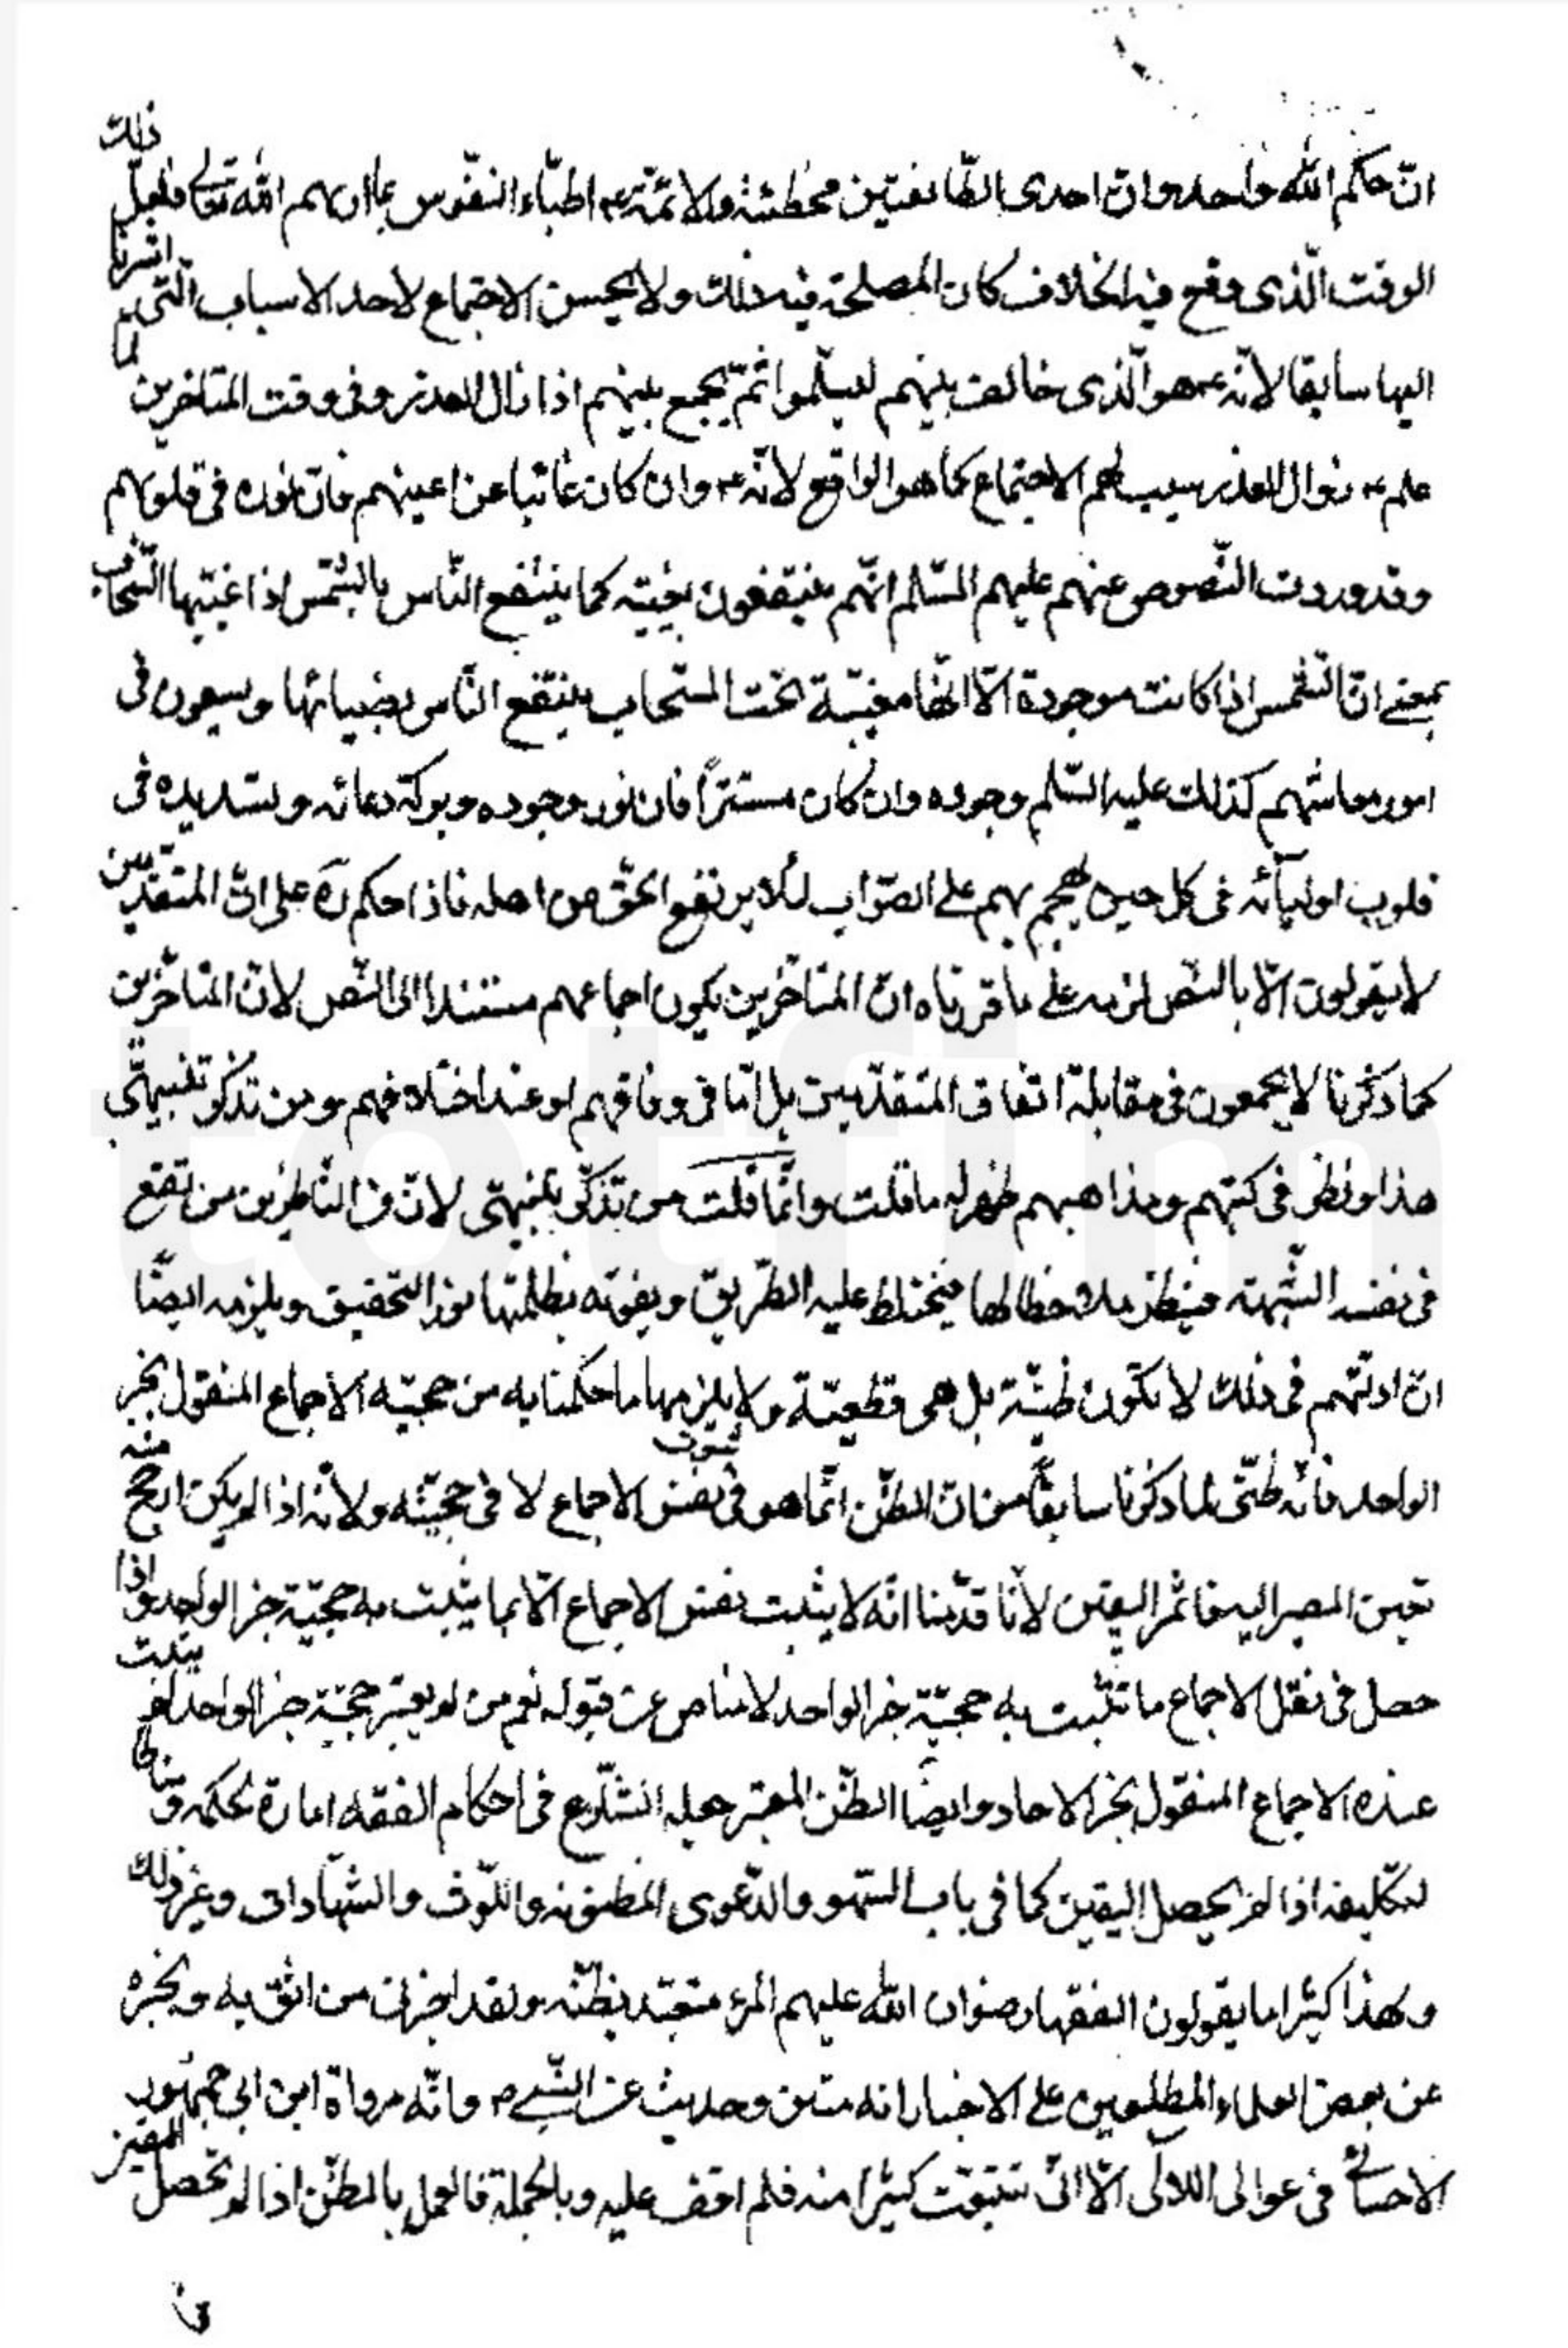 انّ حكم الله واحد وانّ احدى الطّائفتين مخطئة والائمّة ع اطبّاء النفّوس بما اريهم الله تعالى فلعلّ ذلك
الوقت الّذى وقع فيه الخلاف كان المصلحة فيه ذلك ولا يحسن الاجتماع لاحد الاسباب الّتى اشرنا
اليها سابقا لانّه ع هو الّذى خالف بينهم ليسلموا ثمّ يجمع بينهم اذا زال العذر وفى وقت المتاخرين لما
علم ع زوال العذر سبب لهم الاجتماع كما هو الواقع لانّه ع وان كان غائبا عن اعينهم فان نوره فى قلوبهم
وقد وردت النّصوص عنهم عليهم السّلم انّهم ينتفعون بغيبته كما ينتفع النّاس بالشّمس اذا غيّبها السّحاب
بمعنى انّ الشّمس اذا كانت موجودة الّا انّها مغيّبة تحت السّحاب ينتفع النّاس بضيائها ويسعون فى
امور معاشهم كذلك عليه السّلم وجوده وان كان مستتراً فان نور وجوده وبركة دعائه وتسديده فى
قلوب اوليائه فى كل حين يهجم بهم على الصّواب لئلا يرتفع الحقّ من اهله فاذا حكم ره على انّ المتقدّمين
لا يقولون الّا بالنّص لزمه على ما قررناه انّ المتاخّرين يكون اجماعهم مستندا الى النّص لانّ المتاخّرين
كما ذكرنا لا يجمعون فى مقابلة اتفاق المتقدّمين بل امّا فى وفاقهم او عند اختلافهم ومن تذكّر تنبيهى
هذا ونظر فى كتبهم ومذاهبهم ظهر له ما قلت وانّما قلت من تذكّر تنبيهى لانّ من النّاظرين من تقع
فى نفسه الشّبهة فينظر ملاحظا لها فيختلط عليه الطّريق ويفوته بظلمتها نور التّحقيق ويلزمه ايضًا
انّ ادلّتهم فى ذلك لا تكون ظنيّة بل هى قطعيّة ولا يلزمها ما حكمنا به من حجيّة الاجماع المنقول بخبر
الواحد فانّه ظنّى لما ذكرنا سابقًا من انّ الظنّ انّما هو فى ثبوت نفس الاجماع لا فى حجيّته ولانّه اذا لم يكن ارجح منه
تعين المصير اليه فاثمر اليقين لانّا قدّمنا انّه لا يثبت نفس الاجماع الّا بما يثبت به حجيّة خبر الواحد واذا
حصل فى نقل الاجماع ما تثبت به حجيّة خبر الواحد لا مناص عن قبوله نعم من لم يعتبر حجيّة خبر الواحد لم يثبت
عنده الاجماع المنقول بخبر الاحاد وايضا الظنّ المعتبر جعله الشّارع فى احكام الفقه امارة لحكمه ومناطا
لتكليفه اذا لم يحصل اليقين كما فى باب السّهو والدّعوى المظنونه واللّوث والشّهادات وغير ذلك
ولهذا كثيرا ما يقولون الفقهاء رضوان الله عليهم المرء متعبّد بظنّه ولقد اخبرنى من اثق به وبخبره
عن بعض العلماء المطلعين على الاخبار انه متن وحديث عن النّبى ص وانّه رواه ابن ابى جمهور
الاحسائى فى عوالى اللالى الّا انّى تتبعت كثيرا منه فلم اقف عليه وبالجملة فالعمل بالظنّ اذا لم يحصل